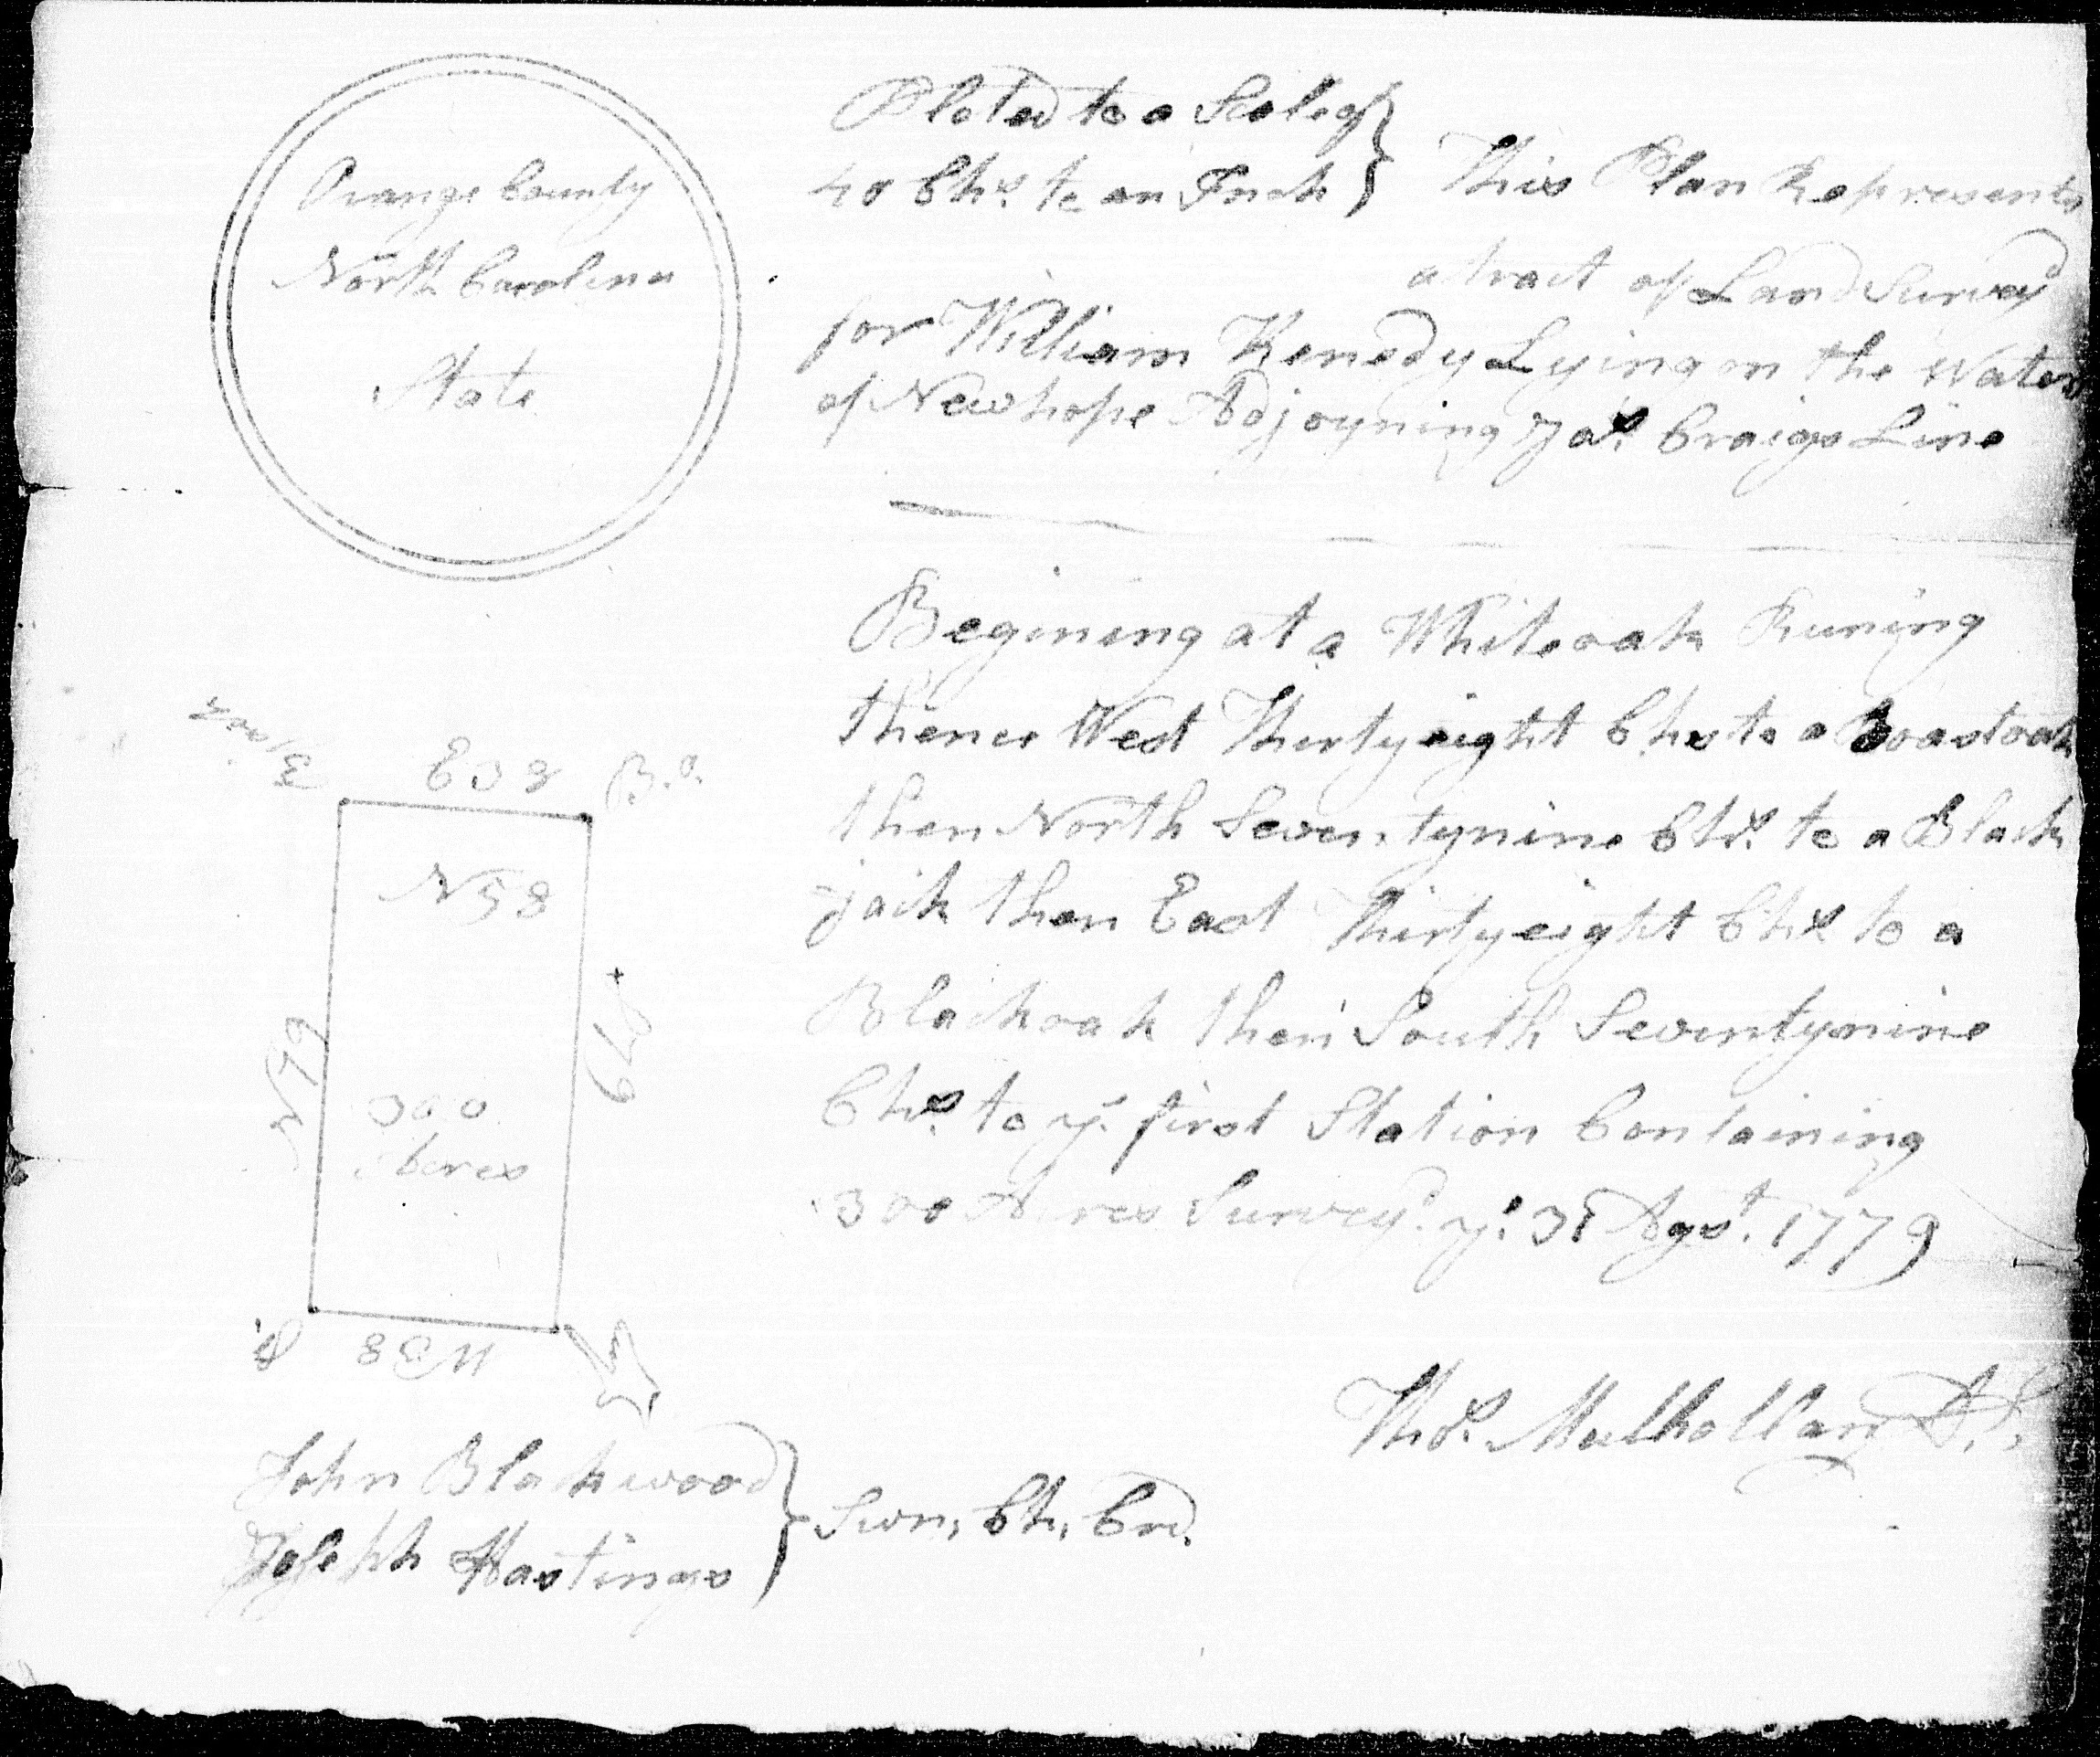 Orange County
North Carolina
State
Ploted to a Scale of
40 Chs. to an Inch
This Plan Represents
a tract of Land Survey'd
for William Kenedy Lying on the Waters
of Newhope Adjoyning Jas. Craigs Line
Begining at a Whiteoak Runing
thence West Thirtyeight Chs to a
then North Seventynine Chs. to a Black
jack then East Thirtyeight Chs to a
Blackoak then South Seventynine
Chs. to ye. first Station Containing
300 Acres Survey'd. ye. 31 Agst. 1779
E 38
B. o.
N 58
79
79
300
Acres
W 38
Thos. Mulhollan D. S.
John Blackwood
Joseph Hastings
Swn. Ch. Crd.